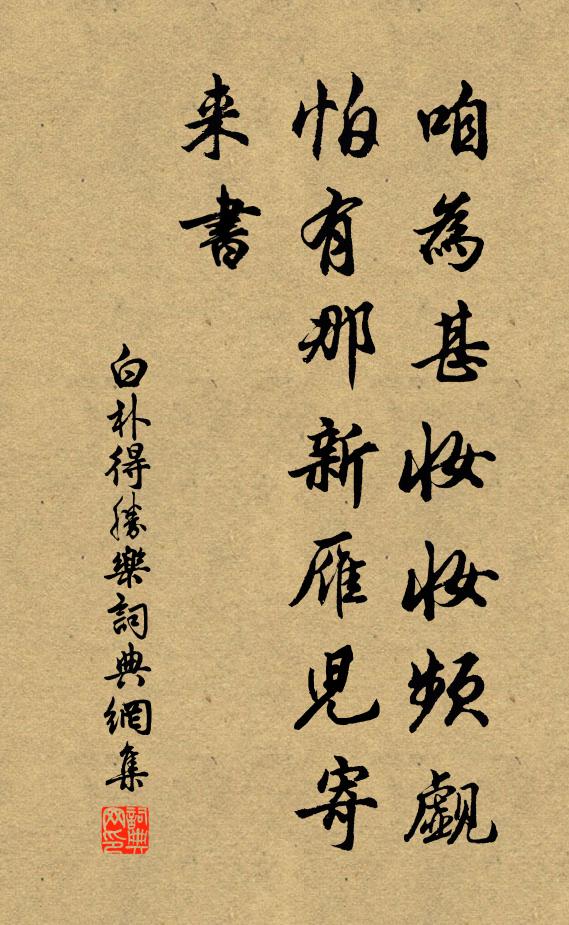 咱為甚妝妝頻覷
怕有那新雁兒寄
来書
白朴得勝樂詞典網集
詞典網印